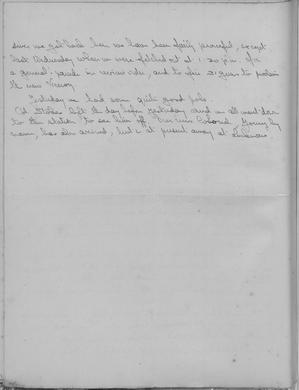 Since we got back here we have been fairly peaceful, except
last Wednesday when we were fetched out at 1.30 p.m. for
a general parade in review order, and to fire 31 guns to proclaim
the new Viceroy
Yesterday we had some quite good polo.
Col. left the day before yesterday and we all went down
to the station to see him off. Our new Colonel, by
name, has also arrived, but is at present away at